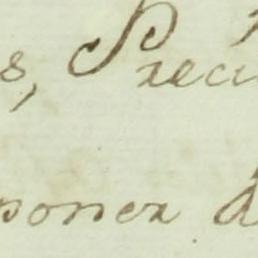 s, Preci
poner d